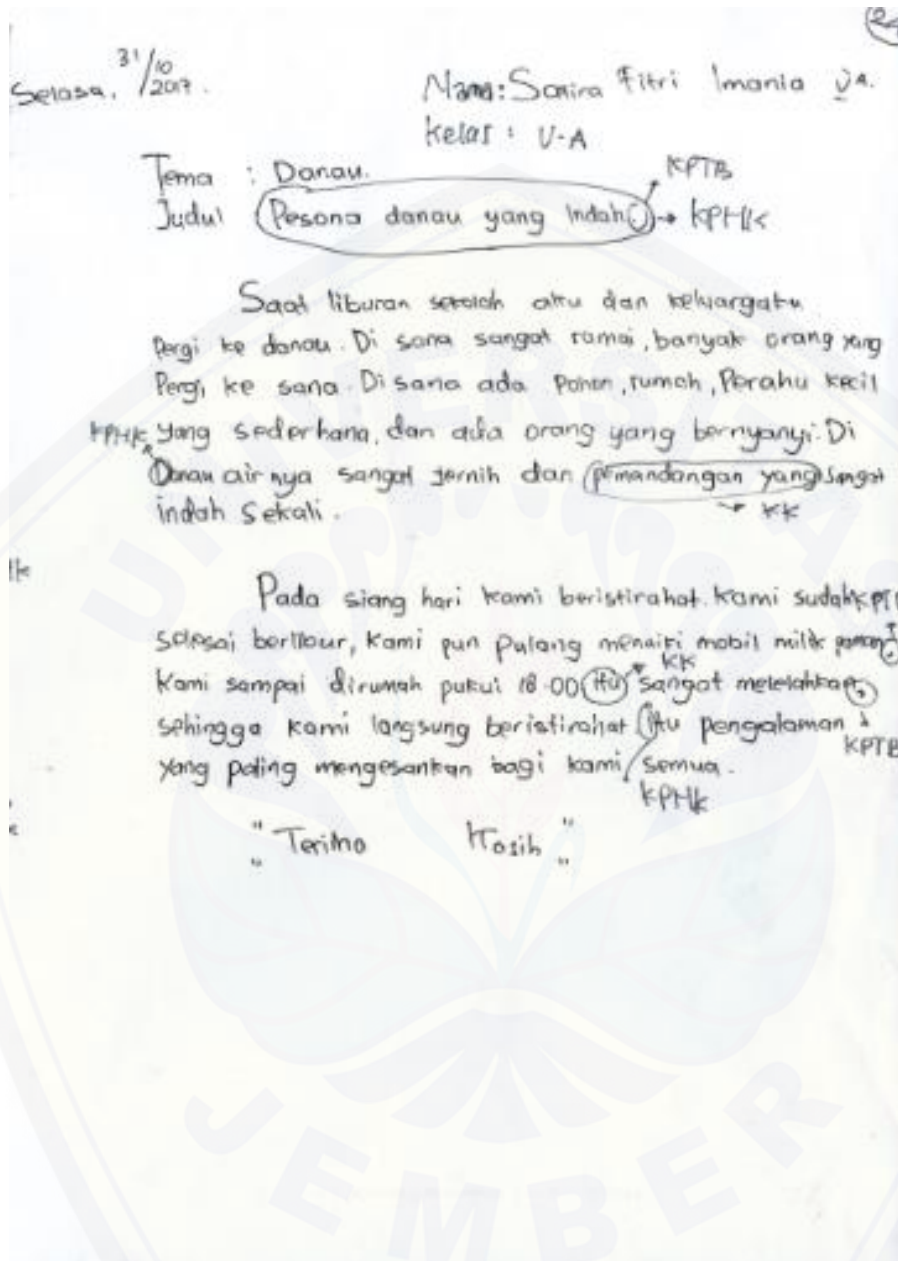 24
Selasa, 31/10 2017.
Nama: Sanira Fitri Imania J.A.
Kelas : V-A
Tema : Danau.
KPTB
Judul Pesona danau yang Indah. → KPHK
Saat liburan sekolah aku dan keluargaku
Pergi ke danau. Di sana sangat ramai, banyak orang yang
Pergi ke sana. Di sana ada Pohon, rumah, Perahu kecil
KPHK yang sederhana, dan ada orang yang bernyanyi. Di
Danau air nya sangat jernih dan pemandangan yang Sangat
indah Sekali. → KK
Pada siang hari kami beristirahat. Kami sudah
selesai berlibur, Kami pun Pulang menaiki mobil milik paman.
KK
Kami sampai dirumah pukul 18.00 itu sangat melelahkan,
sehingga kami langsung beristirahat itu pengalaman
KPTB
yang paling mengesankan bagi kami semua.
KPHK
" Terima Kasih "
UNIVERSITAS
JEMBER